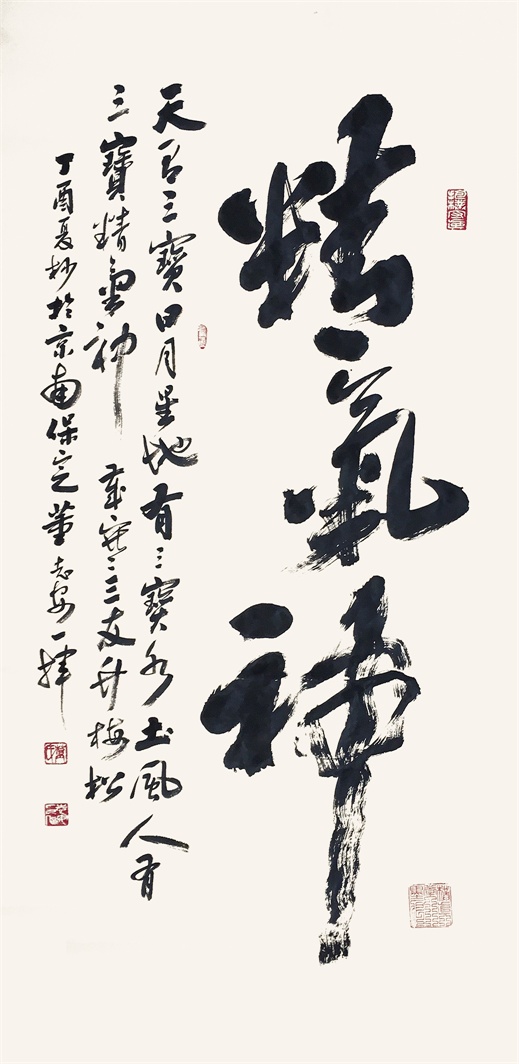 精氣神
天有三寶日月星地有三寶水土風人有
三寶精氣神歲寒三友竹梅松
丁酉夏妙於京南保定董志安一揮